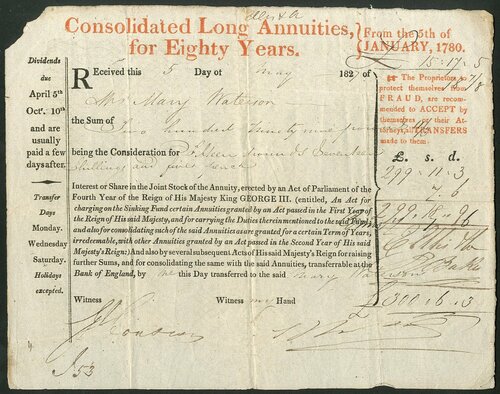 Consolidated Long Annuities,
for Eighty Years.
From the 5th of
JANUARY, 1780.
15 . 17 . 5
Dividends
due
April 5th
Octr. 10th
and are
usually
paid a few
days after.
Transfer
Days
Monday.
Wednesday.
Saturday.
Holidays
excepted.
Received this 5 Day of May 182 of
Mrs Mary Waterson
the Sum of
Two hundred Ninety nine pounds
being the Consideration for Fifteen pounds Seventeen
Shillings and five pence
Interest or Share in the Joint Stock of the Annuity, erected by an Act of Parliament of the
Fourth Year of the Reign of His Majesty King GEORGE III. (entitled, An Act for
charging on the Sinking Fund certain Annuities granted by an Act passed in the First Year of
the Reign of His said Majesty, and for carrying the Duties therein mentioned to the said Fund;
and also for consolidating such of the said Annuities as are granted for a certain Term of Years,
irredeemable, with other Annuities granted by an Act passed in the Second Year of His said
Majesty's Reign;) And also by several subsequent Acts of His said Majesty's Reign for raising
further Sums, and for consolidating the same with the said Annuities, transferable at the
Bank of England, by me this Day transferred to the said Mary Waterson
Witness Witness my Hand
☞ The Proprietors to
protect themselves from
FRAUD, are recom-
mended to ACCEPT by
themselves or their At-
tornies, all TRANSFERS
made to them.
£. s. d.
299 . 11 . 3
7 . 6
299 . 18 . 9
300 . 6 . 3